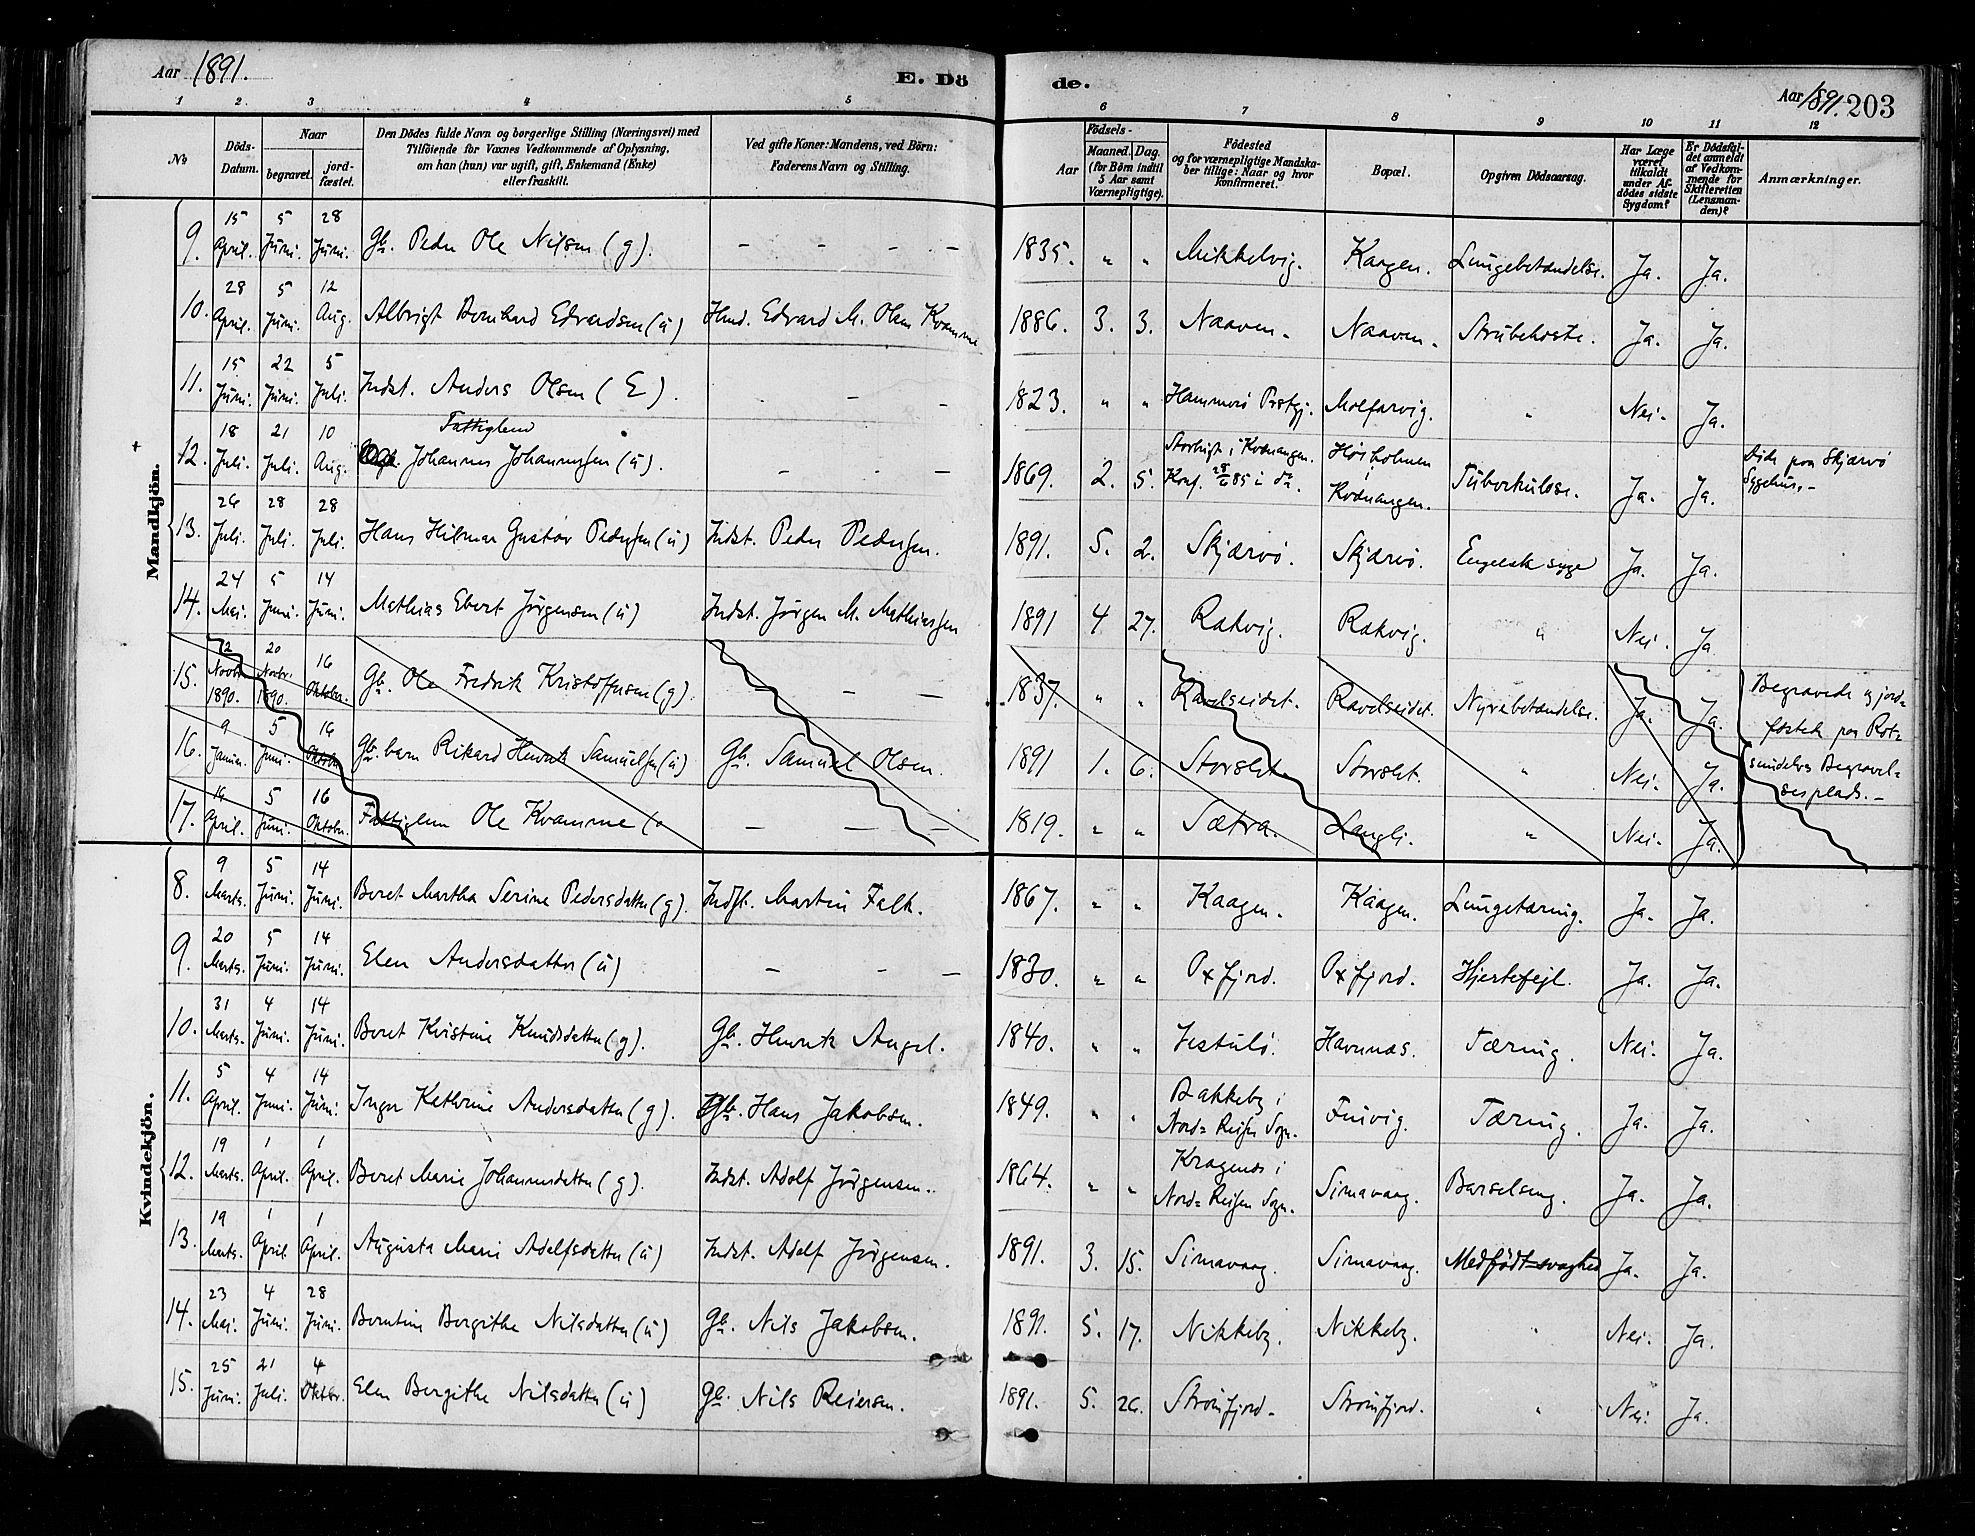 Aar 1891.
E. Döde.
Aar 1891. 203
1 2. 3 4 5 6 7 8 9 10 11 12
No
Döds-Datum.
Naar
begravet.
jord-fæstet.
Den Dödes fulde Navn og borgerlige Stilling (Næringsvei) med
Tilföiende for Voxnes Vedkommende af Oplysning,
om han (hun) var ugift, gift, Enkemand (Enke)
eller fraskilt.
Ved gifte Koner: Mandens, ved Börn:
Faderens Navn og Stilling.
Födsels-
Aar
Maaned. Dag.
(for Börn indtil
5 Aar samt
Værnepligtige).
Födested
og for værnepligtige Mandska-
ber tillige: Naar og hvor
konfirmeret.
Bopæl.
Opgiven Dödsaarsag.
Har Læge
været
tilkaldt
under Af-
dödes sidste
Sygdom?
Er Dödsfal-
det anmeldt
af Vedkom-
mende for
Skifteretten
(Lensman-
den)?
Anmærkninger.
Mandkjön.
9. 15 April. 5 Juni. 28 Juni. Gb. Peder Ole Nilsen (g). – – – – 1835. " " Mikkelvig. Kaagen. Lungebetændelse. Ja. Ja.
10. 28 April. 5 Juni. 12 Aug. Albrigt Bernhard Edvardsen (u) Hmd. Edvard M. Olsen Kvamme 1886. 3. 3. Naaven. Naaven. Strubehoste. Ja. Ja.
11. 15 Juni. 22 Juni. 5 Juli. Indst. Anders Olsen (E). – – – 1823. " " Hammerö Prstgj. Molfarvig. " Nei. Ja.
12. 18 Juli. 21 Juli. 10 Aug. Fattiglem Johannes Johannessen (u). – – – 1869. 2. 5. Storbugt i Kvænangen. Konf. 28/6 85 i do. Höisholmen Kvænangen. Tuberkulose. Ja. Ja. Döde paa Skjærvö Sygehus.–
13. 26 Juli. 28 Juli. 28 Juli. Hans Hilmar Gustav Pedersen (u) Indst. Peder Pedersen. 1891. 5. 2. Skjærvö. Skjærvö. Engelsk syge Ja. Ja.
14. 24 Mai. 5 Juni. 14 Juni. Mathias Ebert Jörgensen (u) Indst. Jörgen M. Mathiassen 1891 4 27. Rakvig. Rakvig. " Nei. Ja
15. 12 Novbr. 1890. 20 Novbr. 1890. 16 Oktober. Gb. Ole Fredrik Kristoffersen (g). – – – 1837. " " Ravelseidet. Ravelseidet. Nyrebetændelse. Ja. Ja.
16. 9 Januar. 5 Juni. 16 Oktober Gb. barn Rikard Henrik Samuelsen (u) Gb. Samuel Olsen. 1891 1. 6. Storslet Storslet. " Nei. Ja.
17. 14 April. 5 Juni. 16 Oktobr. Fattiglem Ole Kvamme ( – – – 1819. " " Sætra. Langli. " Nei. Ja.
Begravede og jord=
fæstet paa Rot=
sundelvs Begravel=
sesplads.–
Kvindekjön.
8. 9 Marts. 5 Juni. 14 Juni. Beret Martha Serine Pedersdatter (g). Indst. Martin Falk. 1867. " " Kaagen. Kaagen. Lungetæring. Ja. Ja.
9. 20 Marts. 5 Juni. 14 Juni. Elen Andersdatter (u) – – – 1830. " " Oxfjord. Oxfjord. Hjertefejl. Ja. Ja.
10. 31 Marts. 4 Juni. 14 Juni. Beret Kristine Knudsdatter (g). Gb. Henrik Angel. 1840. " " Havnnæs. Tæring. Nei. Ja.
11. 5 April. 4 Juni. 14 Juni. Inger Kathrine Andersdatter (g). Gb. Hans Jakobsen. 1849. " " Bakkeby i Nord= Reisen Sogn. Tæring. Ja. Ja.
12. 19 Marts. 1 April. 1 April. Beret Marie Johannesdatter (g). Indst. Adolf Jörgensen. 1864. " " Kragenæs i Nord= Reisen Sogn. Simavaag. Barselseng. Ja. Ja.
13. 19 Marts. 1 April. 1 April. Augusta Marie Adolfsdatter (u) Indst. Adolf Jörgensen. 1891. 3. 15. Simavaag. Simavaag. Medfödt=svaghed Ja. Ja.
14. 23 Mai. 4 Juni. 28 Juni. Berntine Bergithe Nilsdatter (u) Gb. Nils Jakobsen. 1891. 5. 17. Nikkeby. Nikkeby. " Nei. Ja.
15. 25 Juni. 21 Juli. 4 Oktbr. Elen Bergithe Nilsdatter (u) Gb. Nils Reiersen. 1891. 5. 26. Strömfjord. Strömfjord. " Nei. Ja.